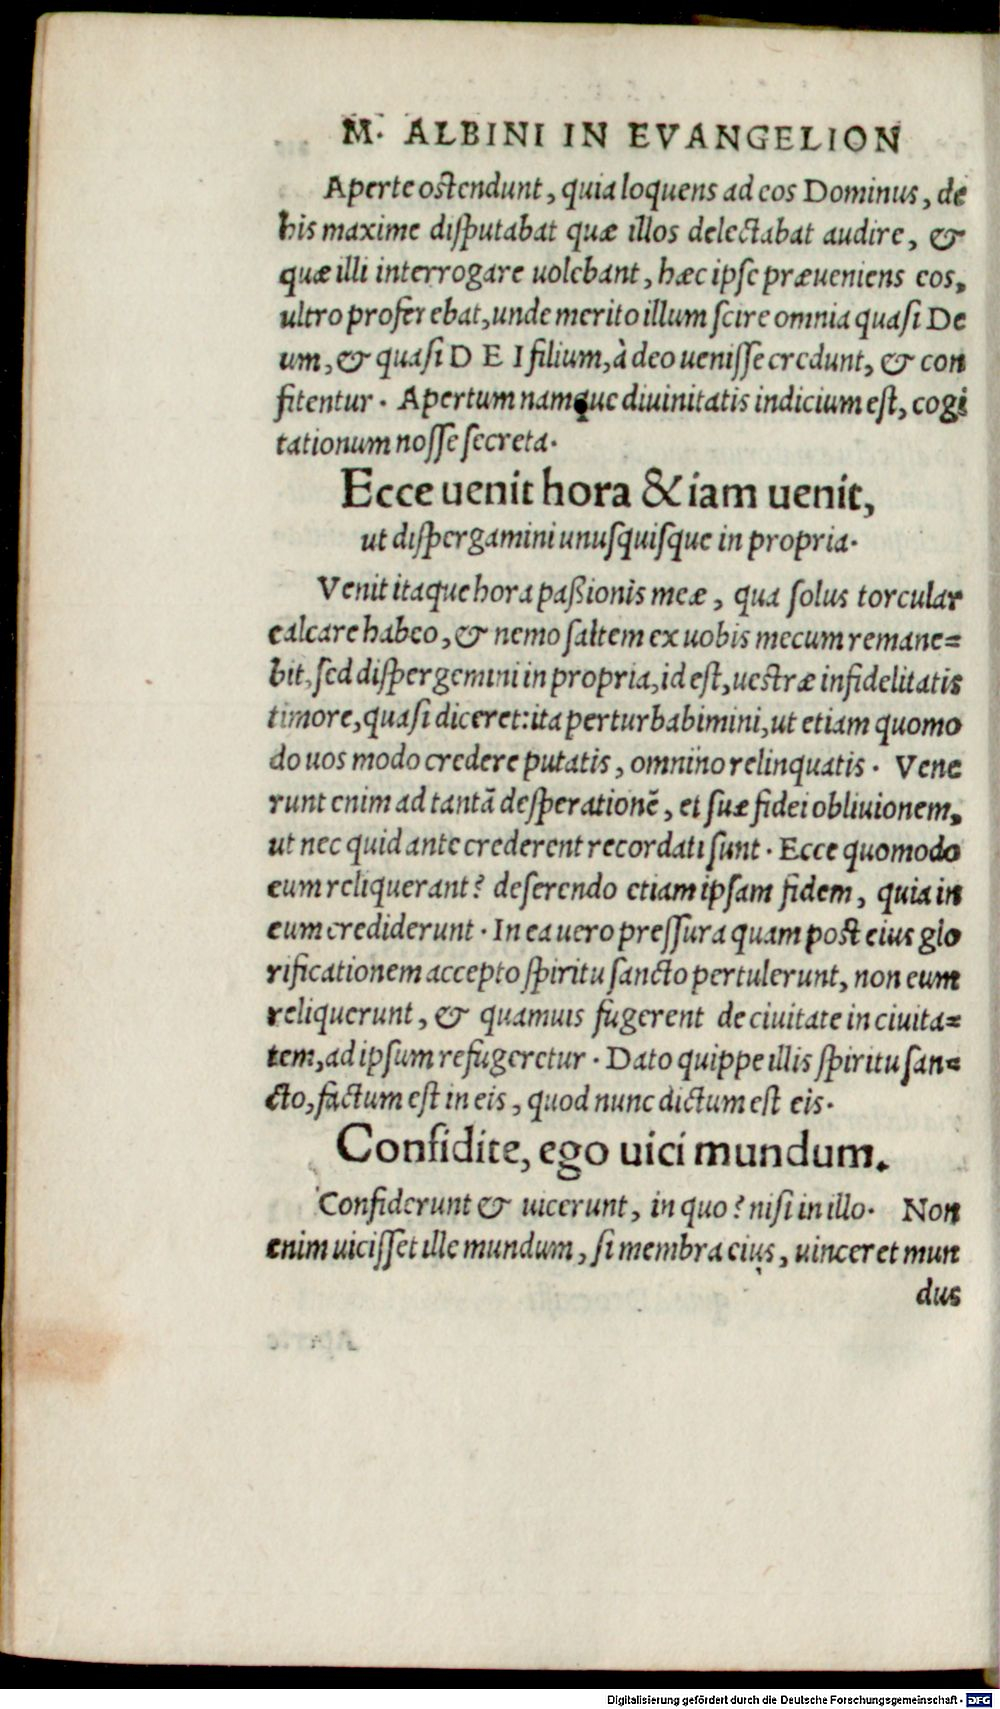 M. ALBINI IN EVANGELION
Aperte ostendunt, quia loquens ad eos Dominus, de
his maxime disputabat quæ illos delectabat audire, &
quæ illi interrogare uolebant, hæc ipse præueniens eos,
ultro proferebat, unde merito illum scire omnia quasi De
um, & quasi D E I filium, à deo uenisse credunt, & con
fitentur. Apertum namque diuinitatis indicium est, cogi
tationum nosse secreta.
Ecce uenit hora & iam uenit,
ut dispergamini unusquisque in propria.
Venit itaque hora paßionis meæ, qua solus torcular
calcare habeo, & nemo saltem ex uobis mecum remane=
bit, sed dispergemini in propria, id est, uestræ infidelitatis
timore, quasi diceret: ita perturbabimini, ut etiam quomo
do uos modo credere putatis, omnino relinquatis. Vene
runt enim ad tantā desperationē, et suæ fidei obliuionem,
ut nec quid ante crederent recordati sunt. Ecce quomodo
eum reliquerant? deserendo etiam ipsam fidem, quia in
eum crediderunt. In ea uero pressura quam post eius glo
rificationem accepto spiritu sancto pertulerunt, non eum
reliquerunt, & quamuis fugerent de ciuitate in ciuita=
tem, ad ipsum refugeretur. Dato quippe illis spiritu san=
cto, factum est in eis, quod nunc dictum est eis.
Confidite, ego uici mundum.
Confiderunt & uicerunt, in quo? nisi in illo. Non
enim uicisset ille mundum, si membra eius, uinceret mun
dus
Digitalisierung gefördert durch die Deutsche Forschungsgemeinschaft - DFG